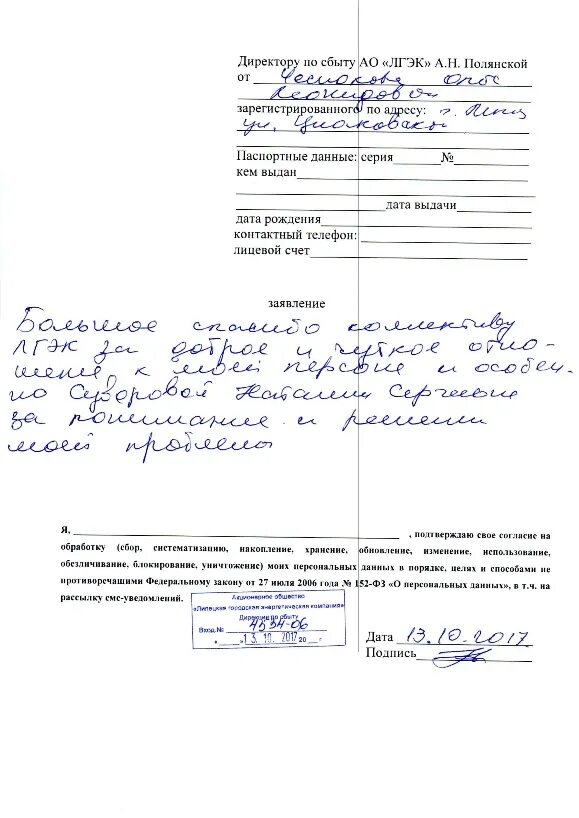 Директору по сбыту АО «ЛГЭК» А.Н. Полянской
от Чеснокова
зарегистрированного по адресу: г.
ул. Циолковского
Паспортные данные: серия_______№___________
кем выдан
дата выдачи
дата рождения
контактный телефон:
лицевой счет
заявление
Большое спасибо коллективу
ЛГЭК за доброе и чуткое отно-
шение к моей персоне и особен-
но Суворовой Наталии Сергеевне
за понимание и решении
моей проблемы
Я, , подтверждаю свое согласие на
обработку (сбор, систематизацию, накопление, хранение, обновление, изменение, использование,
обезличивание, блокирование, уничтожение) моих персональных данных в порядке, целях и способами не
противоречащими Федеральному закону от 27 июля 2006 года № 152-ФЗ «О персональных данных», в т.ч. на
рассылку смс-уведомлений.
Акционерное общество
«Липецкая городская энергетическая компания»
Дирекция по сбыту
Вход.№ 4594-06
« » 13.10.2017 20 г.
Дата 13.10.2017
Подпись